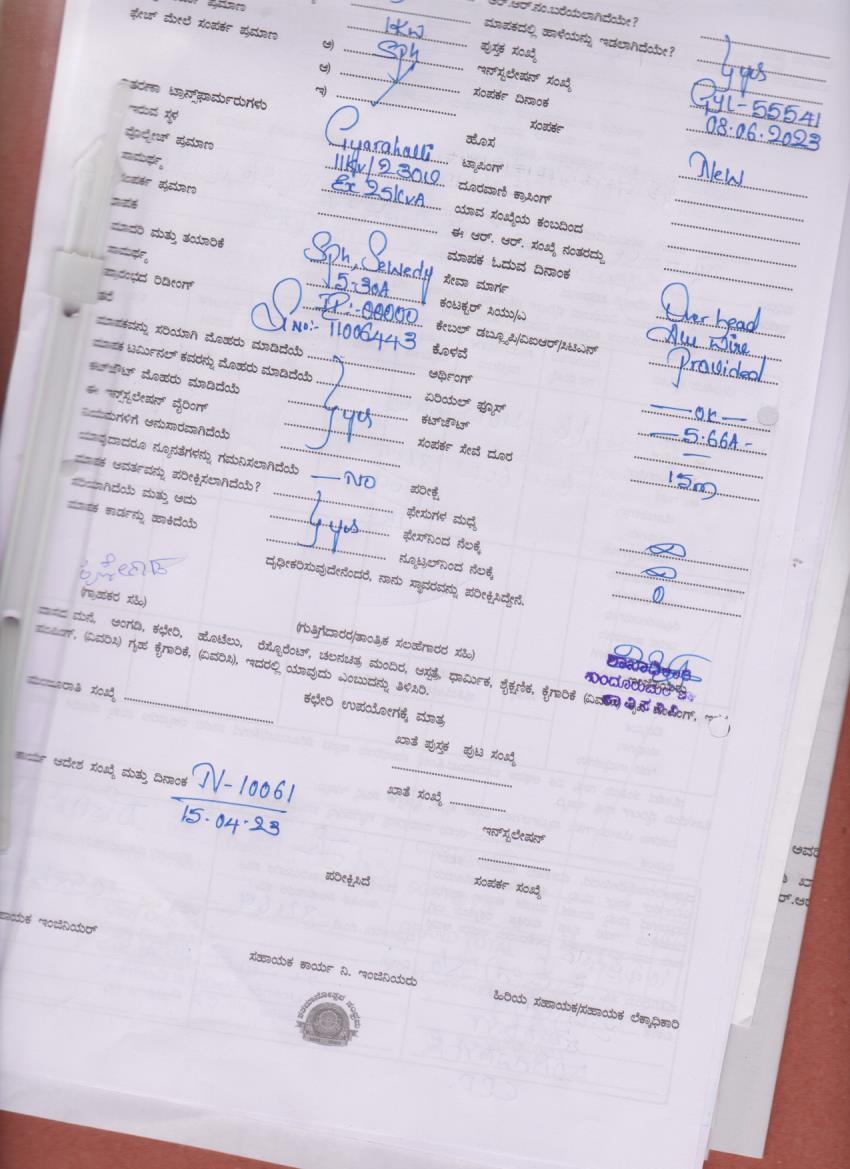 ಆರ್.ಆರ್.ನಂ.ಬರೆಯಲಾಗಿದೆಯೇ?
ಪ್ರಮಾಣ ಮಾಪಕದಲ್ಲಿ ಹಾಳೆಯನ್ನು ಇಡಲಾಗಿದೆಯೇ? yes
ಫೇಜ್ ಮೇಲೆ ಸಂಪರ್ಕ ಪ್ರಮಾಣ 1KW ಪುಸ್ತಕ ಸಂಖ್ಯೆ
ಅ) Sph ಇನ್‌ಸ್ಟಲೇಷನ್ ಸಂಖ್ಯೆ GYL-55541
ಆ) ಸಂಪರ್ಕ ದಿನಾಂಕ 08.06.2023
ಇ) ಸಂಪರ್ಕ
ಟ್ರಾನ್ಸ್‌ಫಾರ್ಮರುಗಳು
ಇರುವ ಸ್ಥಳ Gyarahalli ಹೊಸ New
ವೋಲ್ಟೇಜ್ ಪ್ರಮಾಣ 11KV/230 ಟ್ಯಾಪಿಂಗ್
ಸಾಮರ್ಥ್ಯ Ex 25KVA ದೂರವಾಣಿ ಕ್ರಾಸಿಂಗ್
ಸಂಪರ್ಕ ಪ್ರಮಾಣ ಯಾವ ಸಂಖ್ಯೆಯ ಕಂಬದಿಂದ
ಈ ಆರ್. ಆರ್. ಸಂಖ್ಯೆ ನಂತರದ್ದು
ಮಾದರಿ ಮತ್ತು ತಯಾರಿಕೆ Sph, Sewedy ಮಾಪಕ ಓದುವ ದಿನಾಂಕ
ಸಾಮರ್ಥ್ಯ 5-30A ಸೇವಾ ಮಾರ್ಗ Over head
ರಿಡೀಂಗ್ 00000 ಕಂಟಕ್ಟರ್ ಸಿಯು/ಎ Alu wire
S No:- 11006443 ಕೇಬಲ್ ಡಬ್ಲ್ಯೂಪಿ/ವಿಐಆರ್/ಸಿಟಿಎನ್ Provided
ಮಾಪಕವನ್ನು ಸರಿಯಾಗಿ ಮೊಹರು ಮಾಡಿದೆಯೆ ಕೊಳವೆ
ಮಾಪಕ ಟರ್ಮಿನಲ್ ಕವರನ್ನು ಮೊಹರು ಮಾಡಿದೆಯೆ ಅರ್ಥಿಂಗ್ OK
ಕಟ್‌ಔಟ್ ಮೊಹರು ಮಾಡಿದೆಯೆ yes ಏರಿಯಲ್ ಫ್ಯೂಸ್ 5.66A
ಈ ಇನ್‌ಸ್ಟಲೇಷನ್ ವೈರಿಂಗ್ ಕಟ್‌ಔಟ್
ನಿಯಮಗಳಿಗೆ ಅನುಸಾರವಾಗಿದೆಯೆ ಸಂಪರ್ಕ ಸೇವೆ ದೂರ 15m
ಯಾವುದಾದರೂ ನ್ಯೂನತೆಗಳನ್ನು ಗಮನಿಸಲಾಗಿದೆಯೆ NO ಪರೀಕ್ಷೆ
ಮಾಪಕ ಆವರ್ತವನ್ನು ಪರೀಕ್ಷಿಸಲಾಗಿದೆಯೆ? ಫೇಸುಗಳ ಮಧ್ಯೆ
ಸರಿಯಾಗಿದೆಯೆ ಮತ್ತು ಅದು yes ಫೇಸ್‌ನಿಂದ ನೆಲಕ್ಕೆ
ಮಾಪಕ ಕಾರ್ಡನ್ನು ಹಾಕಿದೆಯೆ ನ್ಯೂಟ್ರಲ್‌ನಿಂದ ನೆಲಕ್ಕೆ 0
ದೃಢೀಕರಿಸುವುದೇನೆಂದರೆ, ನಾನು ಸ್ಥಾವರವನ್ನು ಪರೀಕ್ಷಿಸಿದ್ದೇನೆ.
(ಗ್ರಾಹಕರ ಸಹಿ)
(ಗುತ್ತಿಗೆದಾರರ/ತಾಂತ್ರಿಕ ಸಲಹೆಗಾರರ ಸಹಿ)
ಶಾಖಾಧಿಕಾರಿ
ವಾಸದ ಮನೆ, ಅಂಗಡಿ, ಕಛೇರಿ, ಹೋಟೆಲು, ರೆಸ್ಟೊರೆಂಟ್, ಚಲನಚಿತ್ರ ಮಂದಿರ, ಆಸ್ಪತ್ರೆ, ಧಾರ್ಮಿಕ, ಶೈಕ್ಷಣಿಕ, ಕೈಗಾರಿಕೆ
(ವಿವರಿಸಿ) ಗೃಹ ಕೈಗಾರಿಕೆ, (ವಿವರಿಸಿ), ಇದರಲ್ಲಿ ಯಾವುದು ಎಂಬುದನ್ನು ತಿಳಿಸಿರಿ.
ಕಛೇರಿ ಉಪಯೋಗಕ್ಕೆ ಮಾತ್ರ
ಮಂಜೂರಾತಿ ಸಂಖ್ಯೆ
ಖಾತೆ ಪುಸ್ತಕ ಪುಟ ಸಂಖ್ಯೆ
ಕಾರ್ಯ ಆದೇಶ ಸಂಖ್ಯೆ ಮತ್ತು ದಿನಾಂಕ N-10061
15.04.23
ಖಾತೆ ಸಂಖ್ಯೆ
ಇನ್‌ಸ್ಟಲೇಷನ್
ಪರೀಕ್ಷಿಸಿದೆ
ಸಂಪರ್ಕ ಸಂಖ್ಯೆ
ಇಂಜಿನಿಯರ್
ಸಹಾಯಕ ಕಾರ್ಯ ನಿ. ಇಂಜಿನಿಯರು
ಹಿರಿಯ ಸಹಾಯಕ/ಸಹಾಯಕ ಲೆಕ್ಕಾಧಿಕಾರಿ